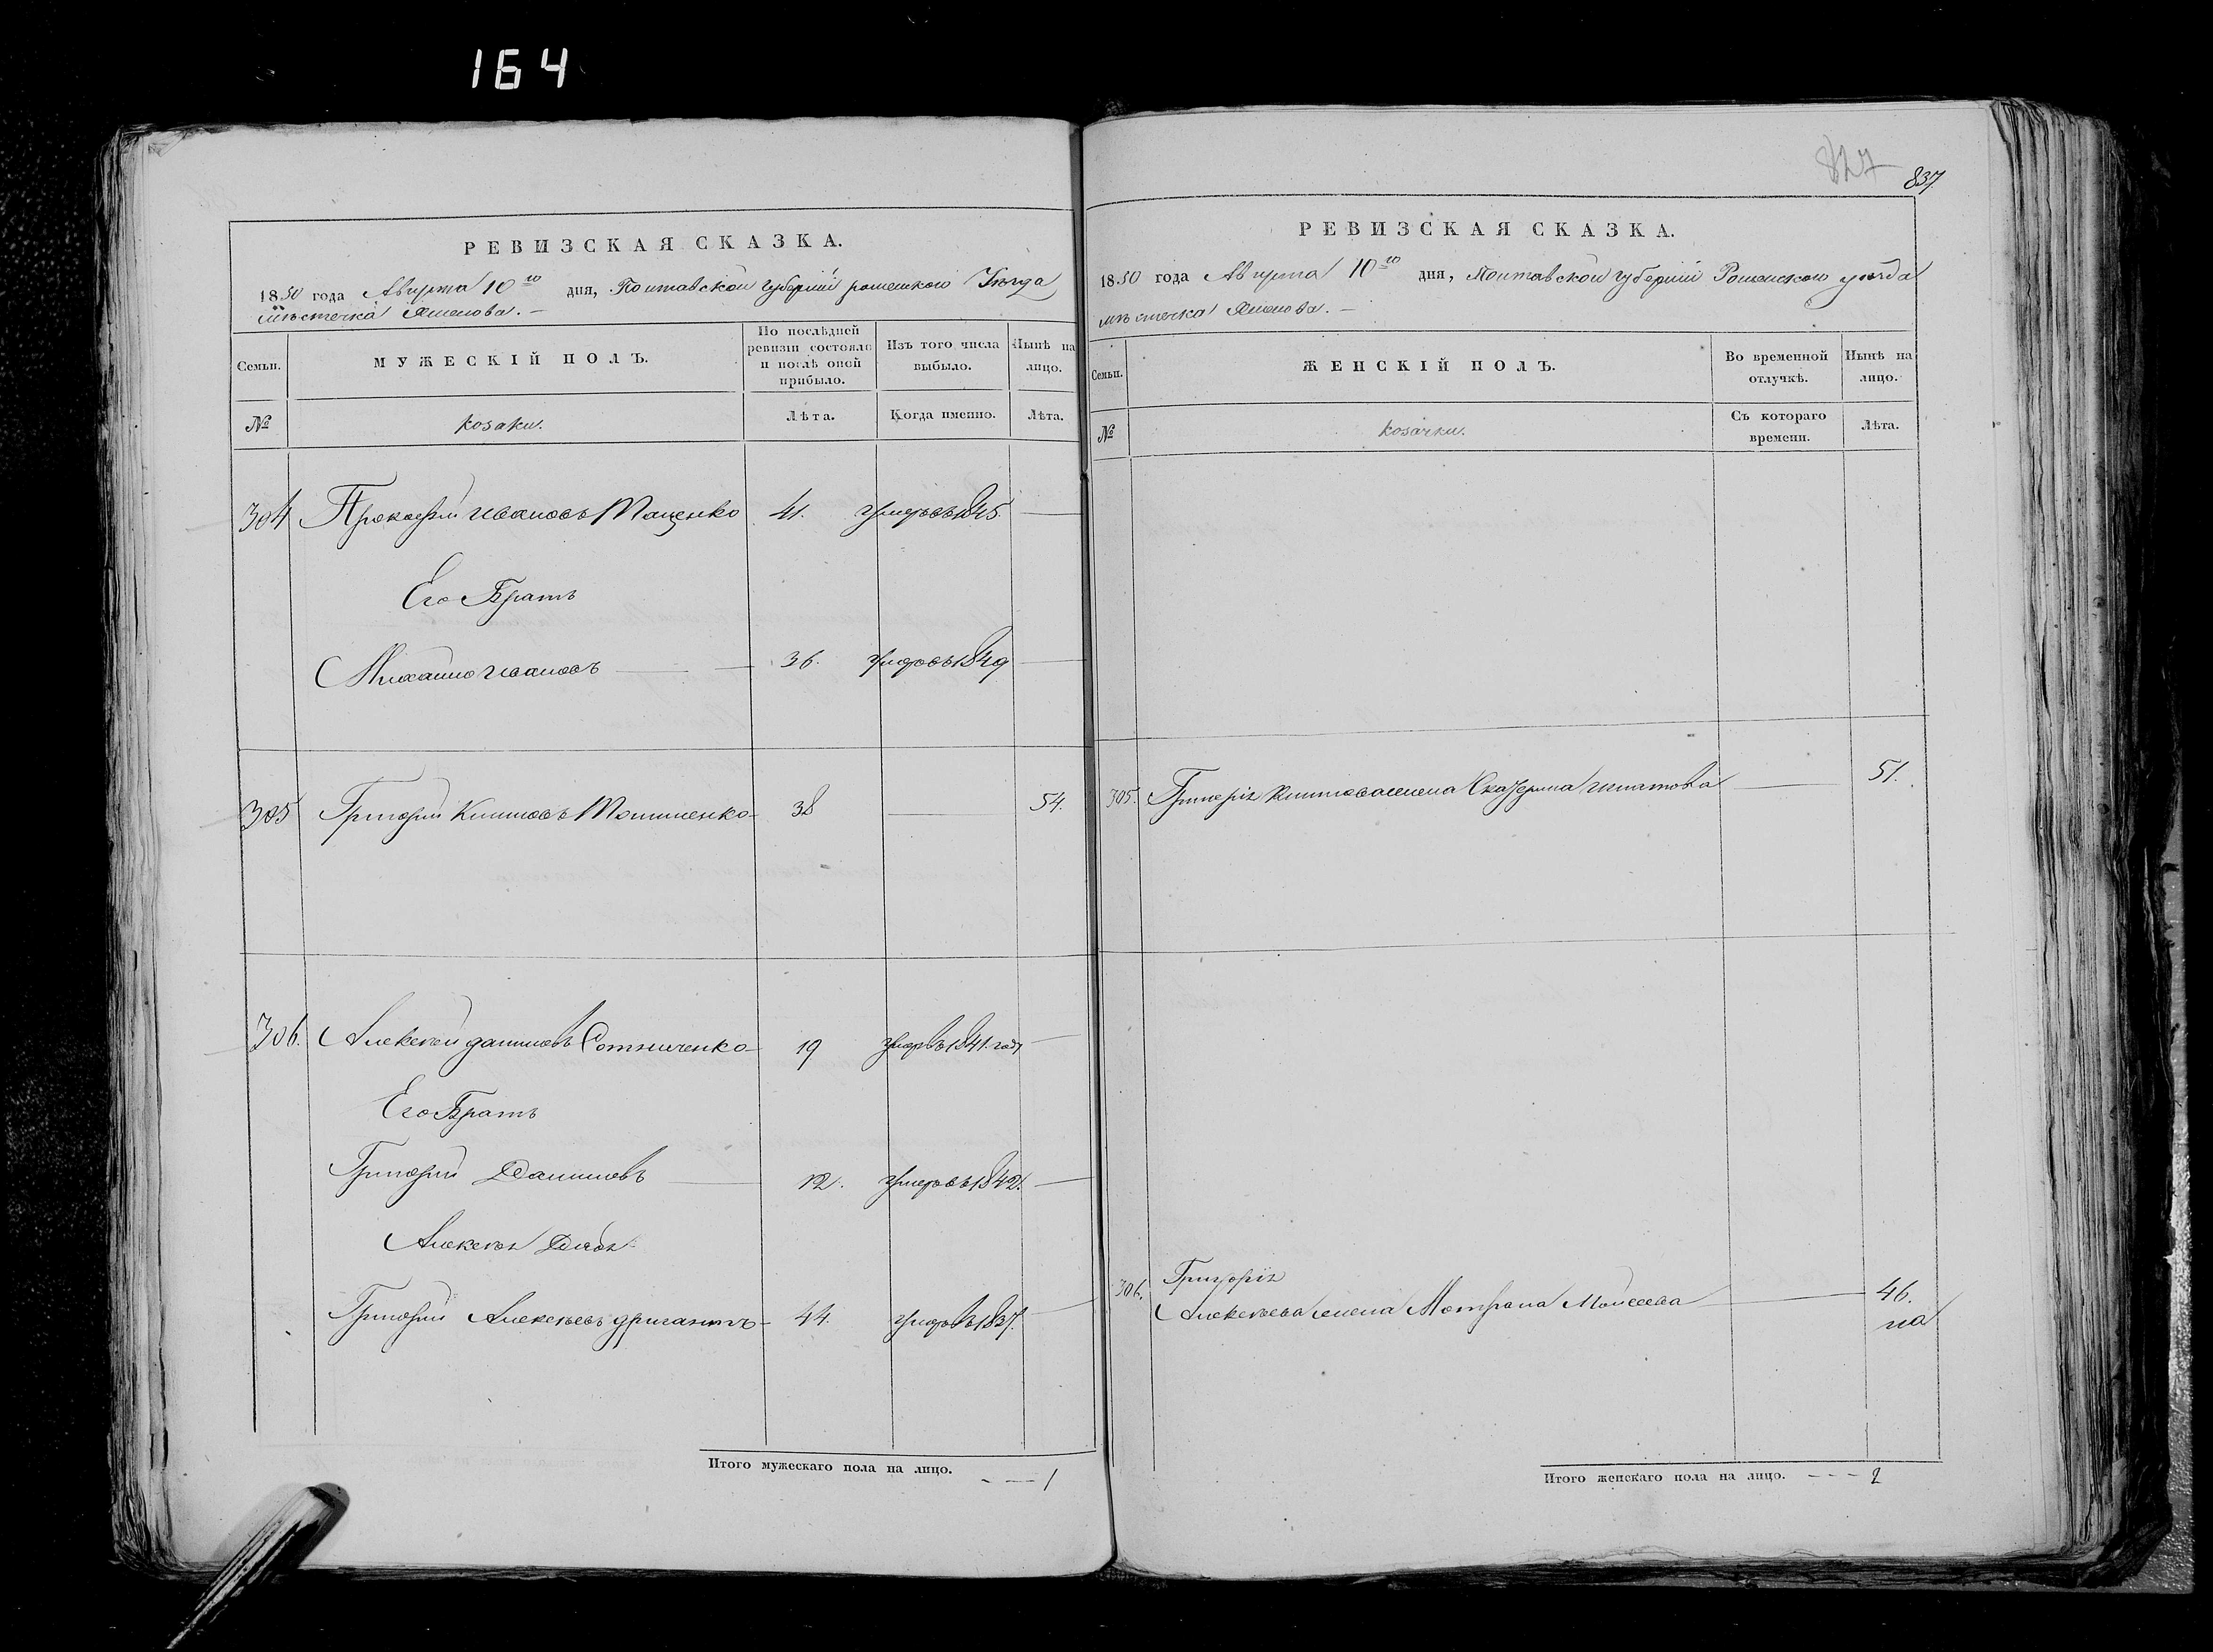 164
827
837
РЕВИЗСКАЯ СКАЗКА.
1850 года Августа 10го дня, Полтавской губерніи роменского Уезда
мѣстечка Смелова.
Семьи. МУЖЕСКІЙ ПОЛЪ. По послѣдней ревизіи состояло и послѣ оной прибыло. Изъ того числа выбыло. Нынѣ на лицо.
№ козаки. Лѣта. Когда именно. Лѣта.
304 Прокофій Ивановъ Маценко 41. умеръ въ 1845.
Его Братъ
Михайло Ивановъ 36. умеръ въ 1849
305 Григорій Климовъ 38 54.
306. Алексей данилов Сотниченко 19 умеръ въ 1841 году
Его Братъ
Григорій Даниловъ 12. умеръ въ 1842.
Алексея Дядя
Григорій Алексеевъ 44. умеръ въ 1837.
Итого мужескаго пола на лицо. 1
РЕВИЗСКАЯ СКАЗКА.
1850 года Августа 10го дня, Полтавской губерніи Роменского уезда
местечка Смелова.
Семьи. ЖЕНСКІЙ ПОЛЪ. Во временной отлучкѣ. Нынѣ на лицо.
№ козачки. Съ котораго времени. Лѣта.
305. Григорія Климова жена Катерина Игнатова 51.
306. Григорія
Алексеева жена Мотрона Моисеева 46.
на
Итого женскаго пола на лицо. 2